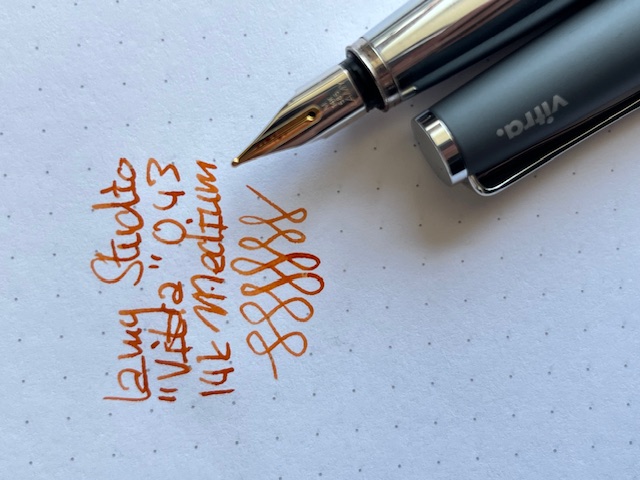 Lamy Studio
"Vitra" 043
14k Medium
vitra.